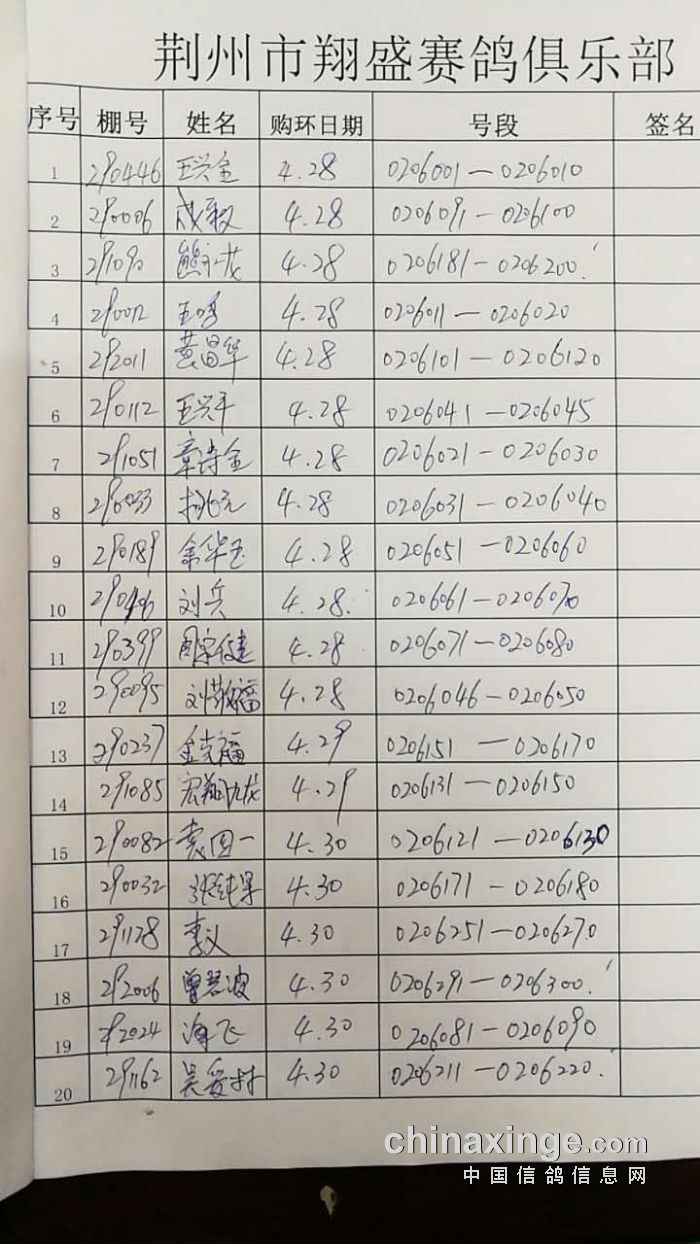 荆州市翔盛赛鸽俱乐部
序号 棚号 姓名 购环日期 号段 签名
1 290446 王兴金 4.28 0206001—0206010
2 290006 成毅 4.28 0206091—0206100
3 291090 4.28 0206181—0206200
4 290012 4.28 0206011—0206020
5 292011 黄昌华 4.28 0206101—0206120
6 290112 王兴平 4.28 0206041—0206045
7 291051 章诗金 4.28 0206021—0206030
8 290033 4.28 0206031—0206040
9 290189 余华玉 4.28 0206051—0206060
10 刘兵 4.28 0206061—0206070
11 290399 周宗健 4.28 0206071—0206080
12 290095 刘敬福 4.28 0206046—0206050
13 290237 金克福 4.29 0206151—0206170
14 291085 宏翔九龙 4.29 0206131—0206150
15 290082 袁国一 4.30 0206121—0206130
16 290032 张纯果 4.30 0206171—0206180
17 291128 李义 4.30 0206251—0206270
18 292006 4.30 0206291—0206300
19 292024 4.30 0206081—0206090
20 291162 吴爱村 4.30 0206211—0206220
chinaxinge.com
中国信鸽信息网